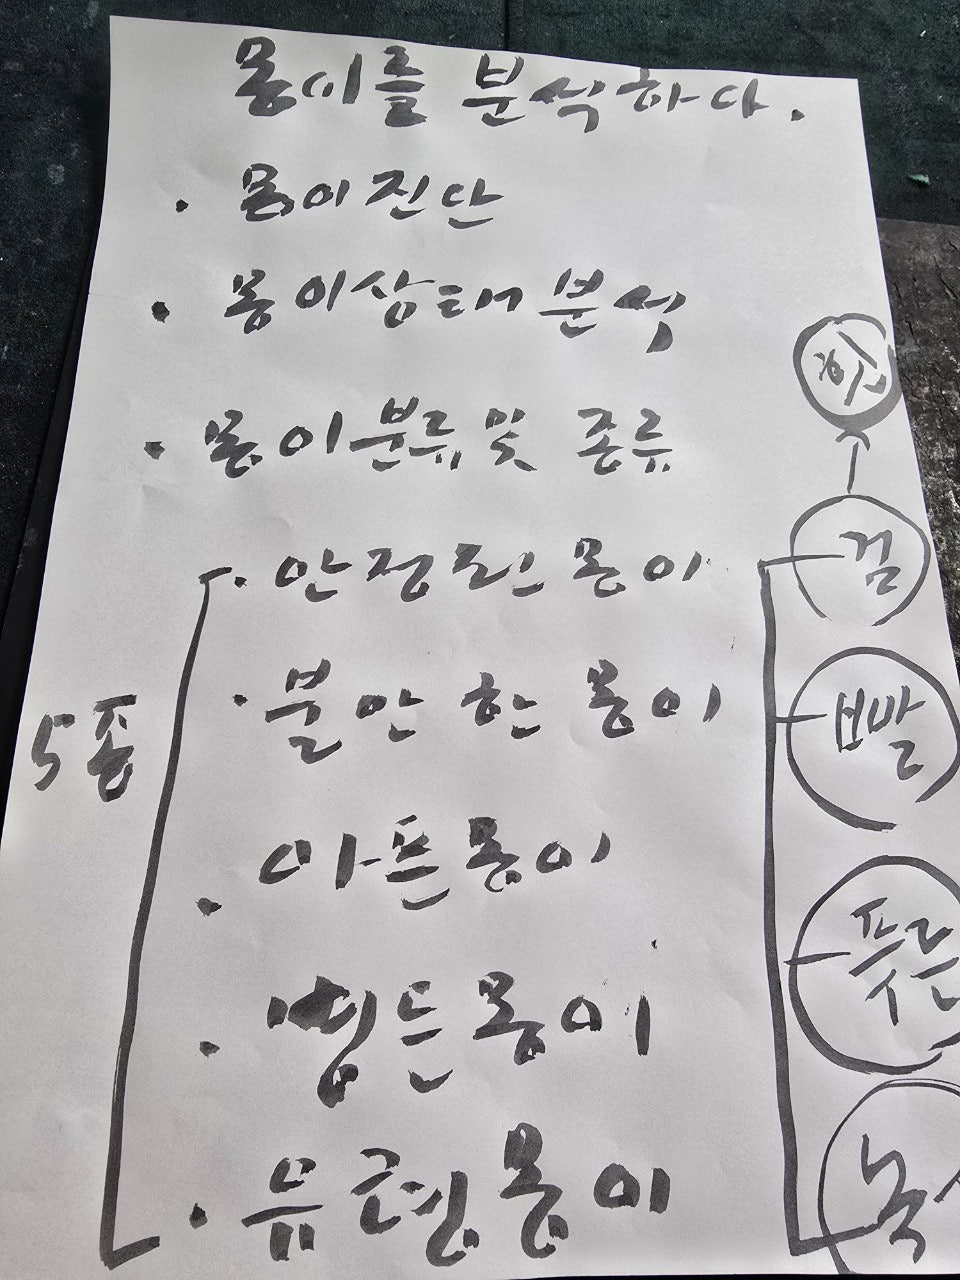 몽이를 분석하다.
· 몽이진단
· 몽이상태분석
· 몽이분류및 종류
· 안정된 몽이
· 불안한 몽이
· 아픈몽이
· 병든몽이
· 유령몽이
5종
흰
검
빨
푸른
녹